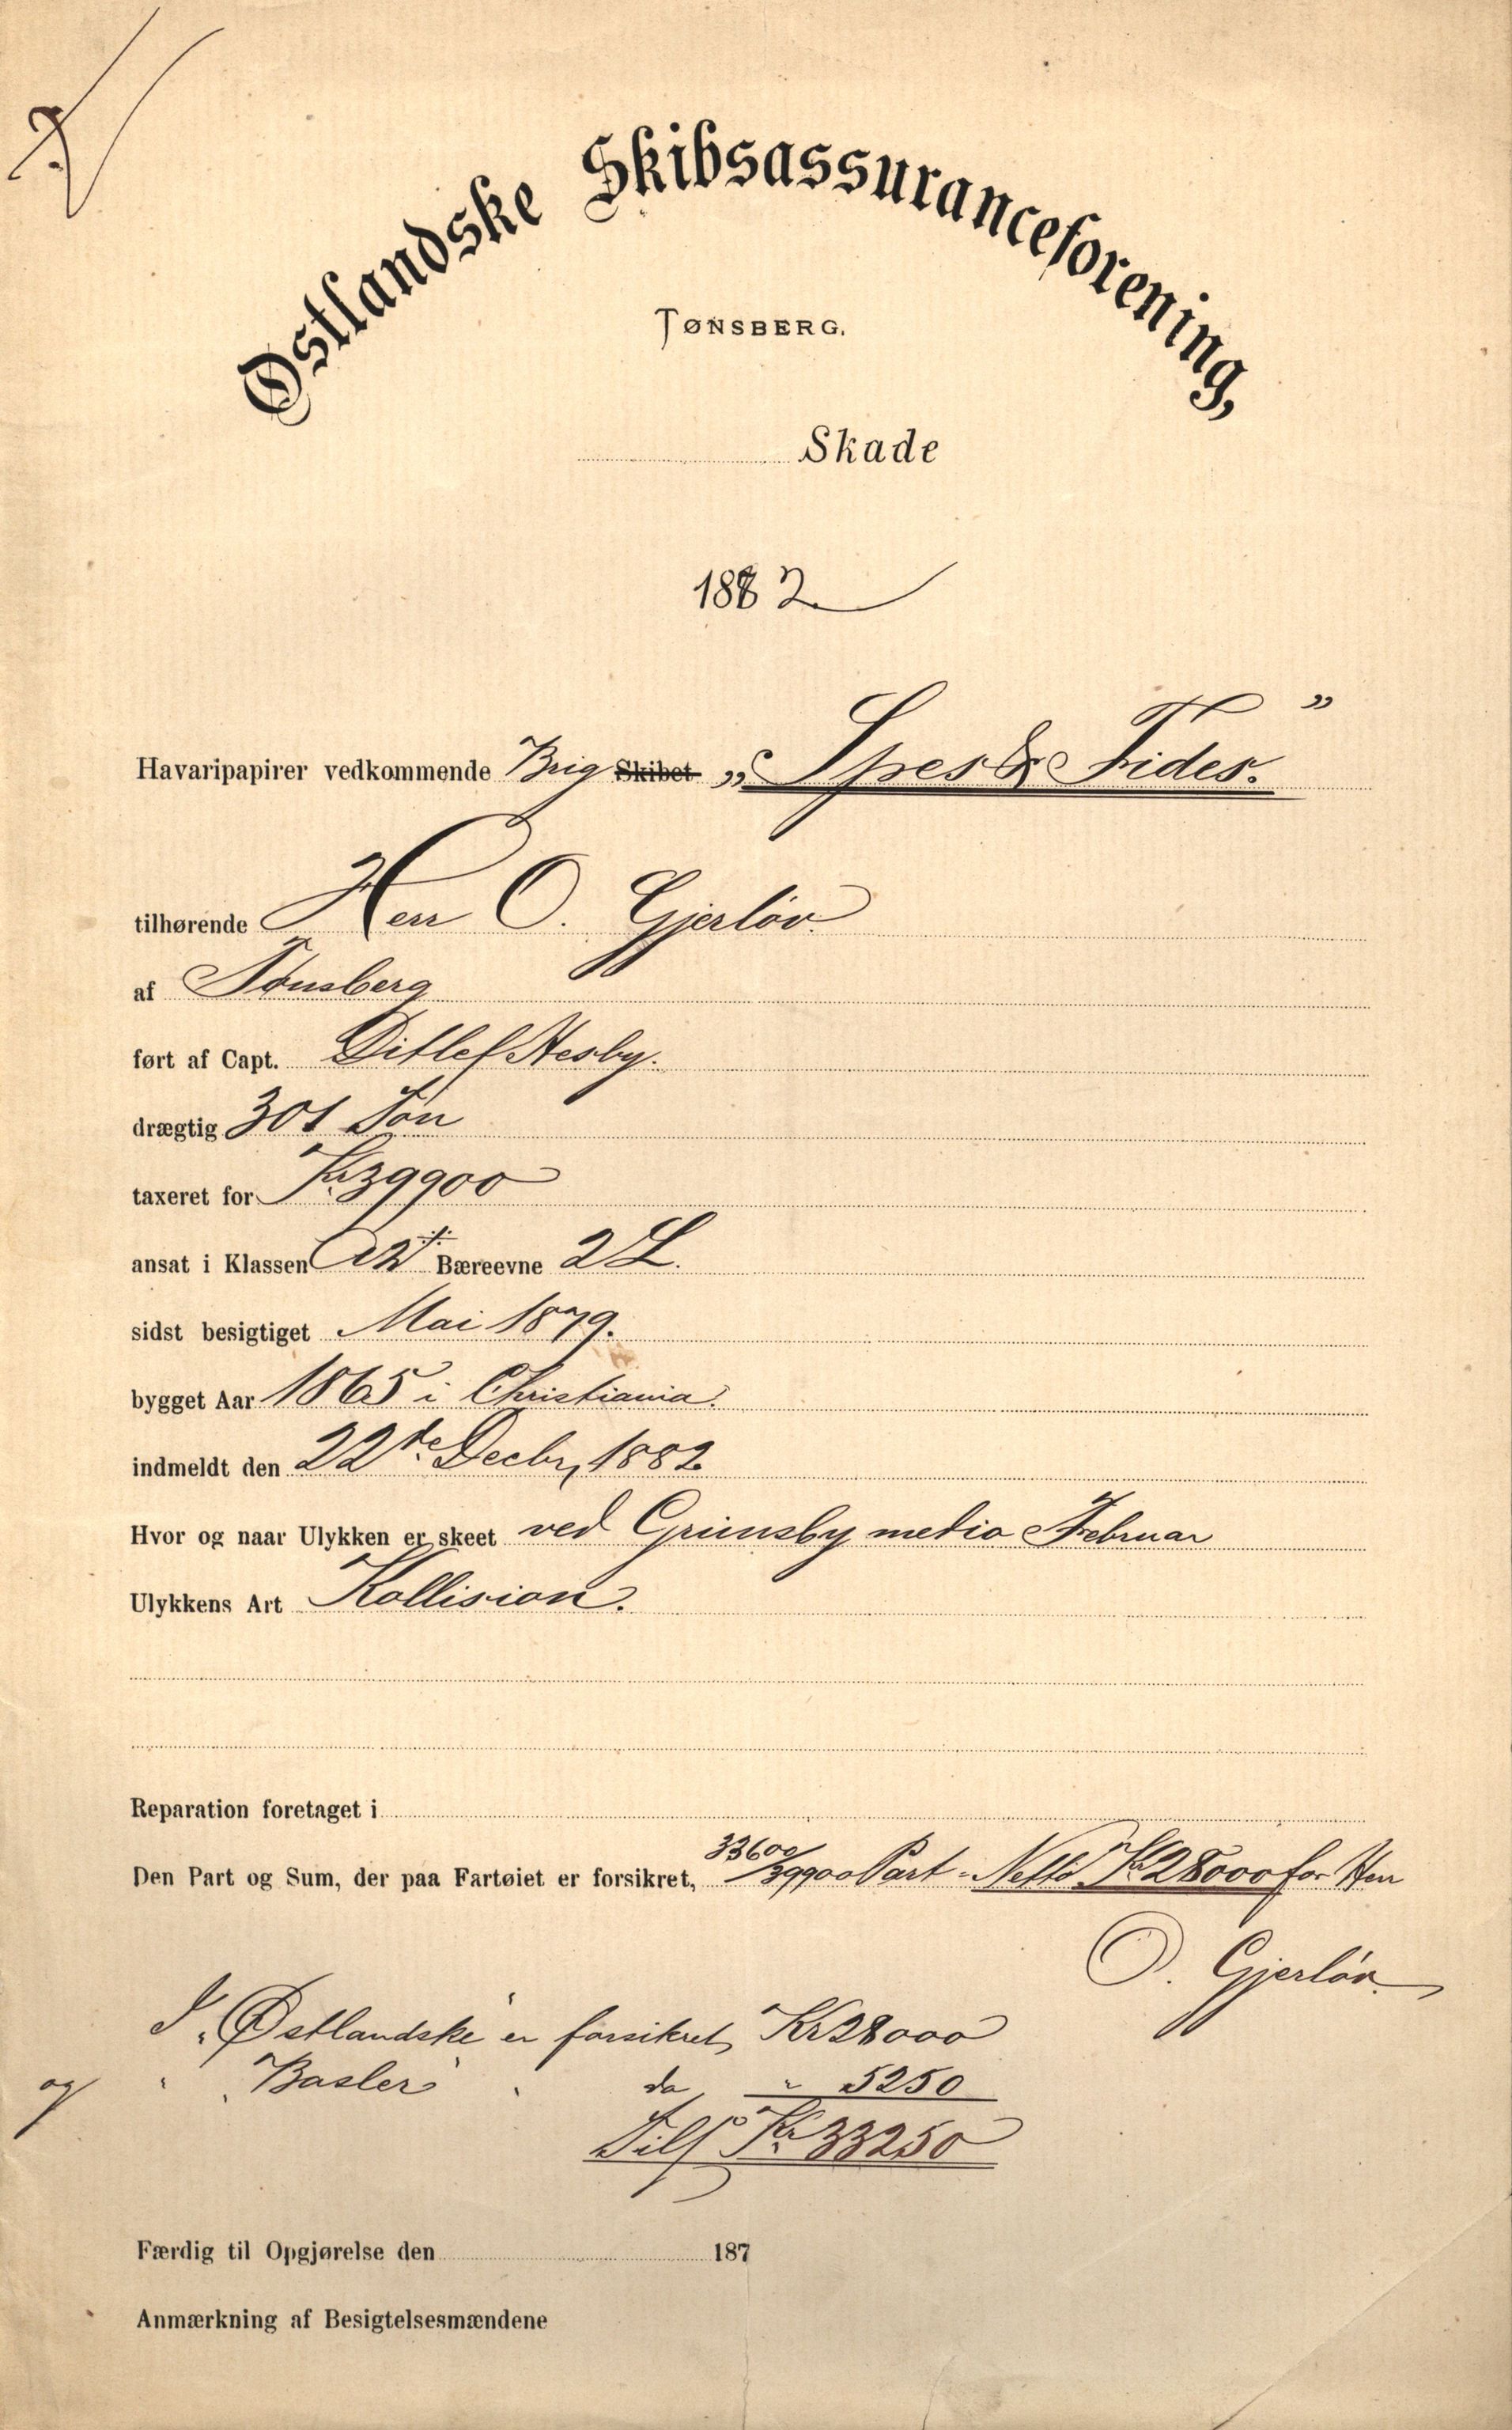 Østlandske Skibsassuranceforening,
TØNSBERG.
Skade
1882
Havaripapirer vedkommende Brig Skibet „Spes & Fides."
tilhørende Herr O. Gjerløv.
af Tønsberg
ført af Capt. Ditlef Hesby.
drægtig 301 Ton
taxeret for Kr. 39900
ansat i Klassen Bæreevne 2 L.
sidst besigtiget Mai 1879.
bygget Aar 1865 i Christiania.
indmeldt den 22de Decbr, 1882
Hvor og naar Ulykken er skeet ved Grimsby medio Februar
Ulykkens Art Kollision.
Reparation foretaget i
Den Part og Sum, der paa Fartøiet er forsikret, 33600/39900 Part - Netto Kr 28000 for Herr
O. Gjerløv
I „Østlandske" er forsikret, Kr 28000
og " „Basler" " do " 5250
Tils. Kr. 33250
Færdig til Opgjørelse den 187
Anmærkning af Besigtelsesmændene